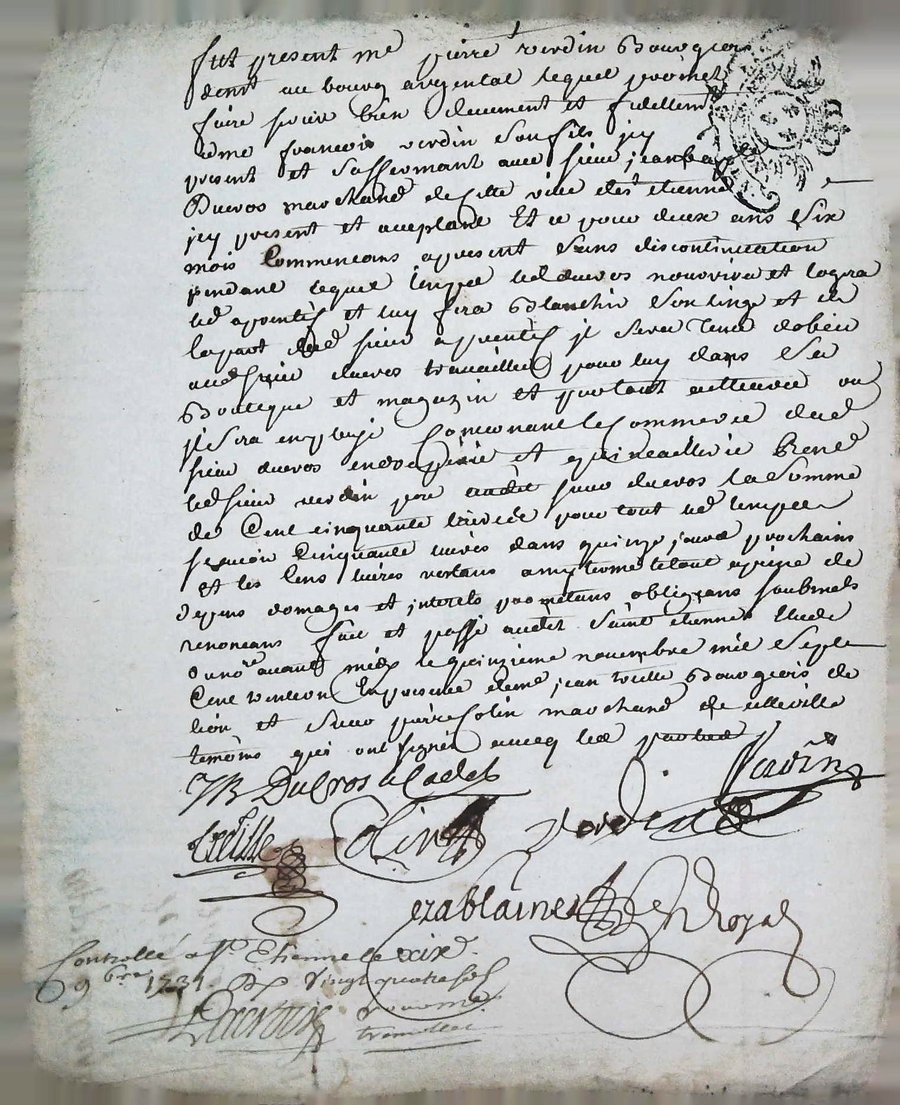 fut present me pierre verdin Bourgeois
demt au bourg argental lequel promet
faire servir bien deuement et fidellemt
me francois verdin son fils icy
present et saffermant avec sieur jean bap
Ducros marchand de cette ville de st etienne
icy present et acceptant Et ce pour deux ans Six
mois Commencans apresent Sans discontinuation
pendant lequel temps led ducros nourrira et logera
led aprentif et luy fera Blanchir Son linge et de
la part dud sieur aprentif il Sera tenu dobeir
aud sieur ducros travailler pour luy dans Sa
Boutique et magazin et partout ailleurs ou
il sera employé Concernant le Commerce dud
sieur ducros en et quincaillerie
led sieur verdin pere audit sieur ducros la Somme
de Cent cinquante livres pour tout led temps
scavoir Cinquante livres dans quinze jours prochains
et les Cens livres restans a peine de
depens domages et interets prometans obligeans soubmet
renoncans fait et passé audit Saint etienne Etude
du nore avant midy le quinzieme novembre mil Sept
Cent trente un En presence de me jean treille Bourgeois de
lion et Sieur pierre Colin marchand de cette ville
temoins qui ont signés avecq les parties
JB DuCros le Cadet verdin
treille Colin verdin
ezablaine Nre Royal
Controllé a St Etienne le xixe
9bre 1731 Rx vingt quatre sols